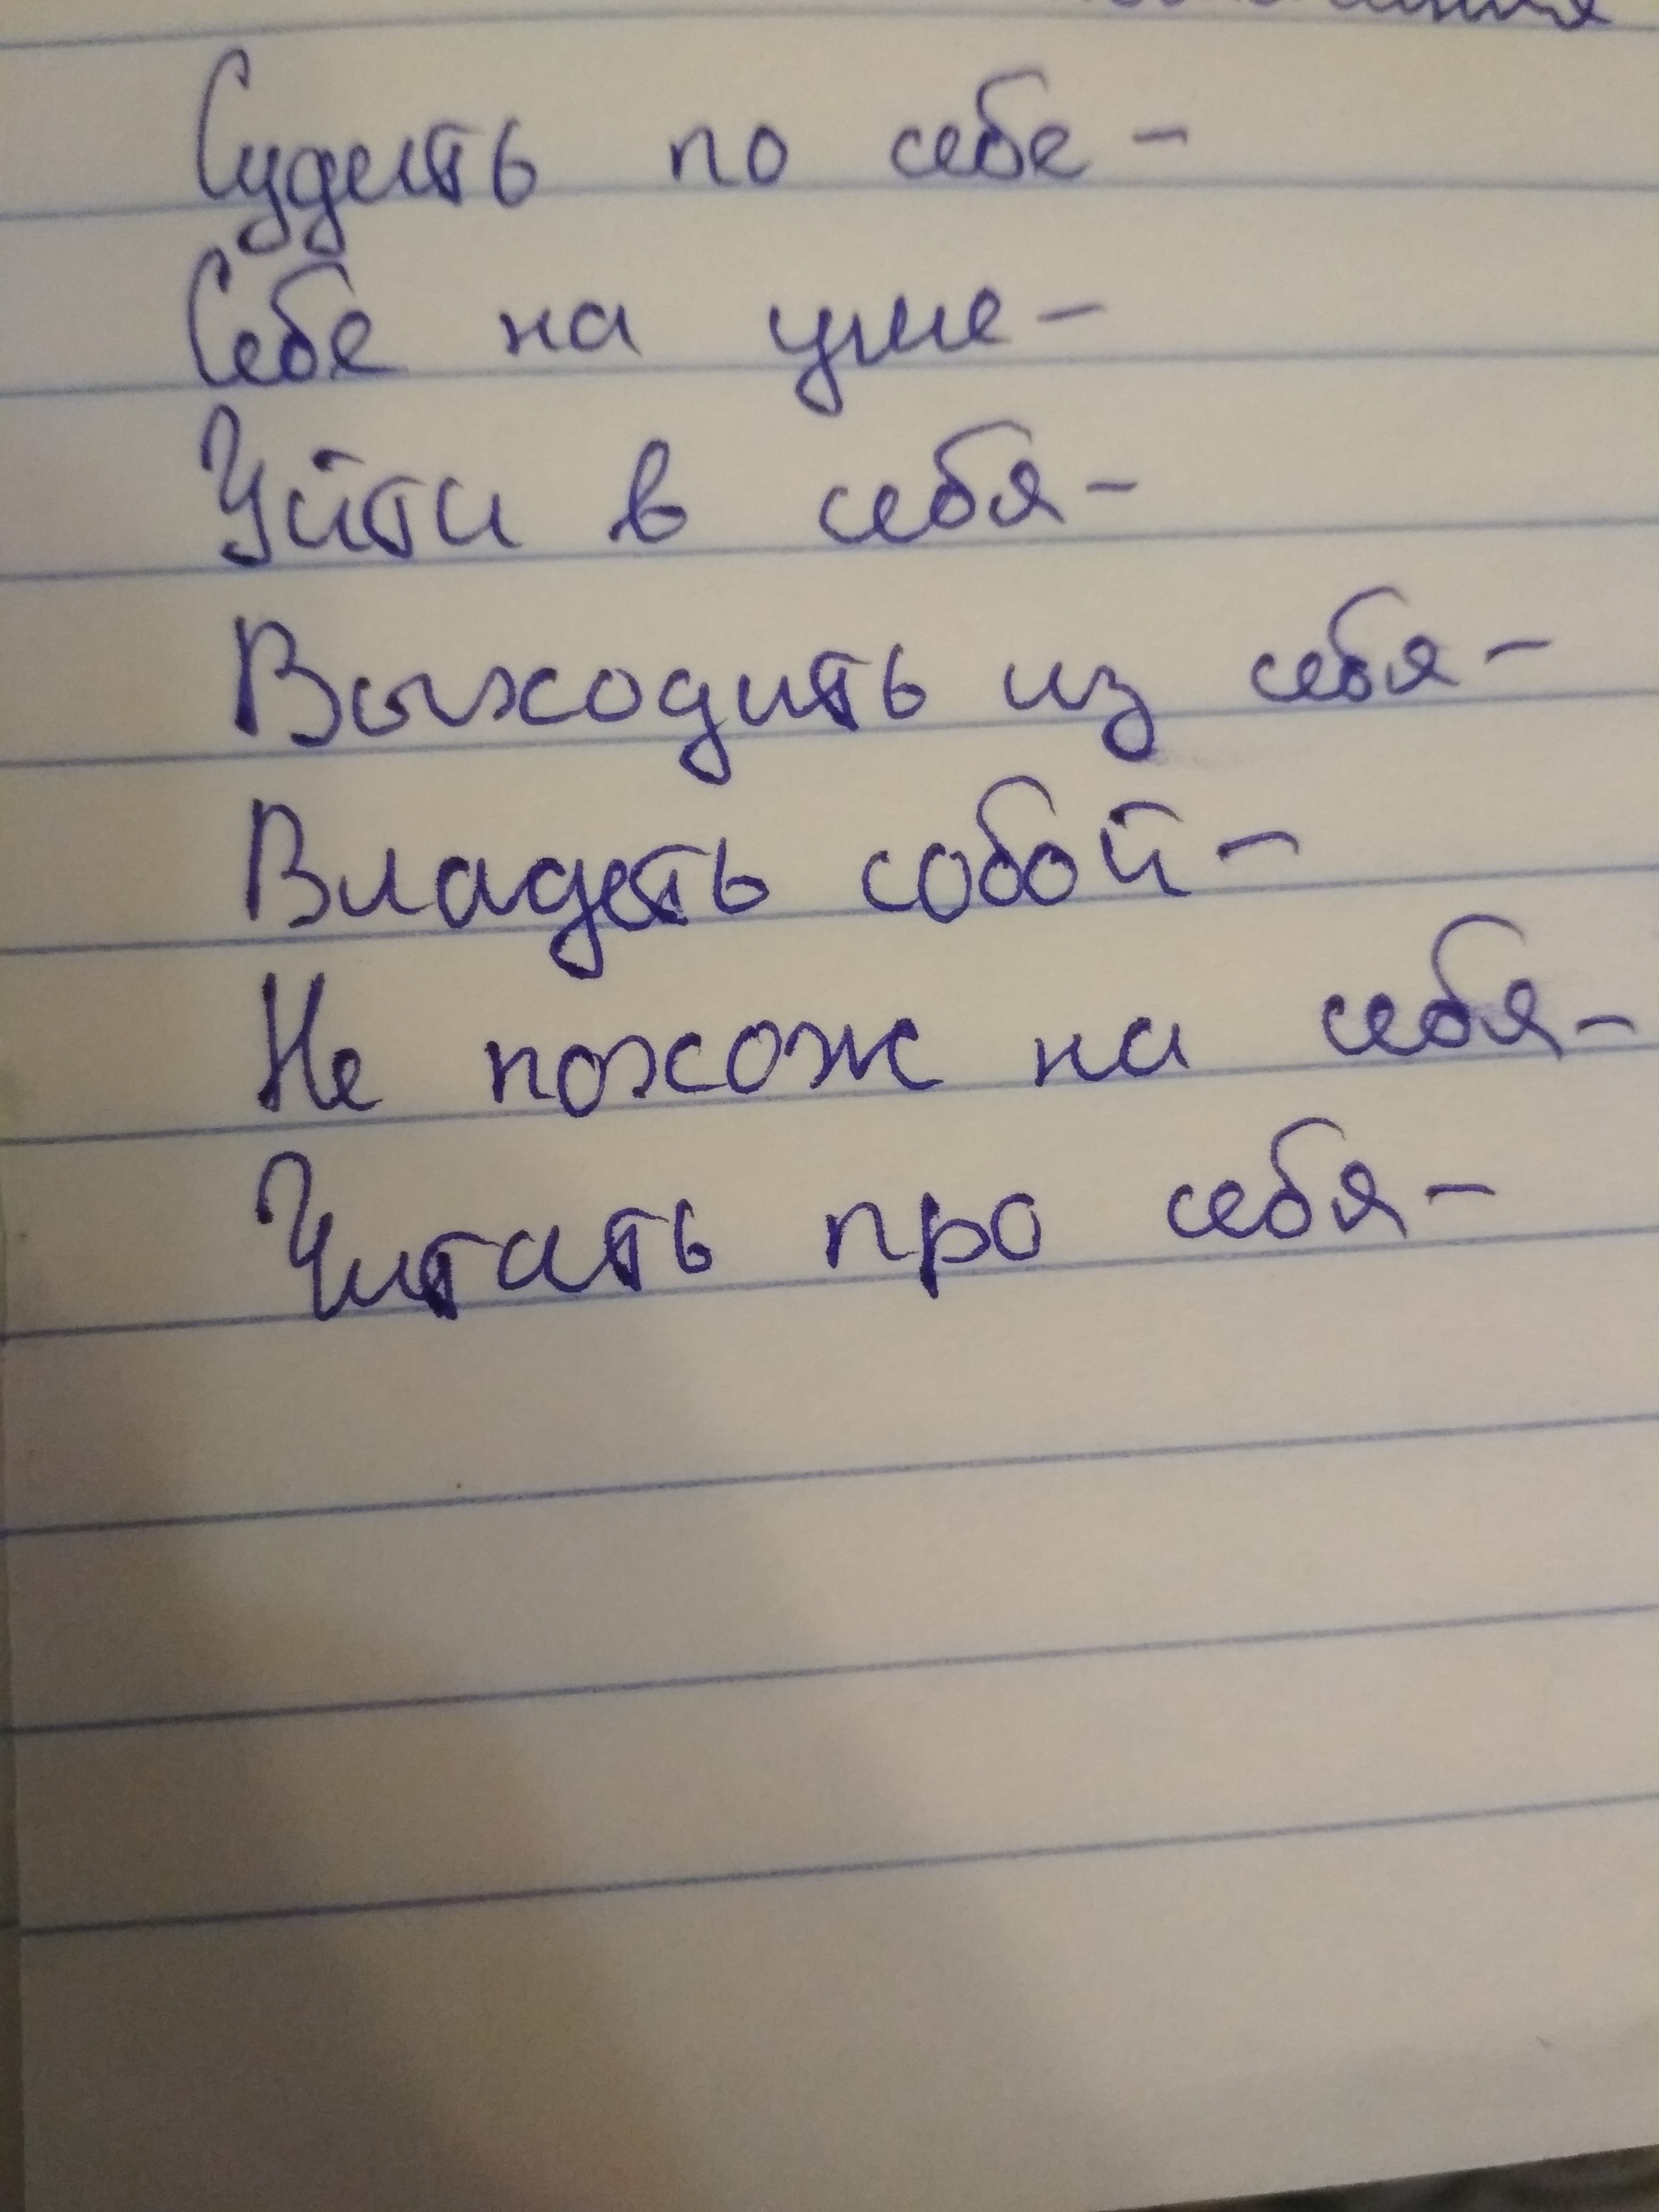 Судить по себе -
Себе на уме -
Уйти в себя -
Выходить из себя -
Владеть собой -
Не похож на себя -
Читать про себя -